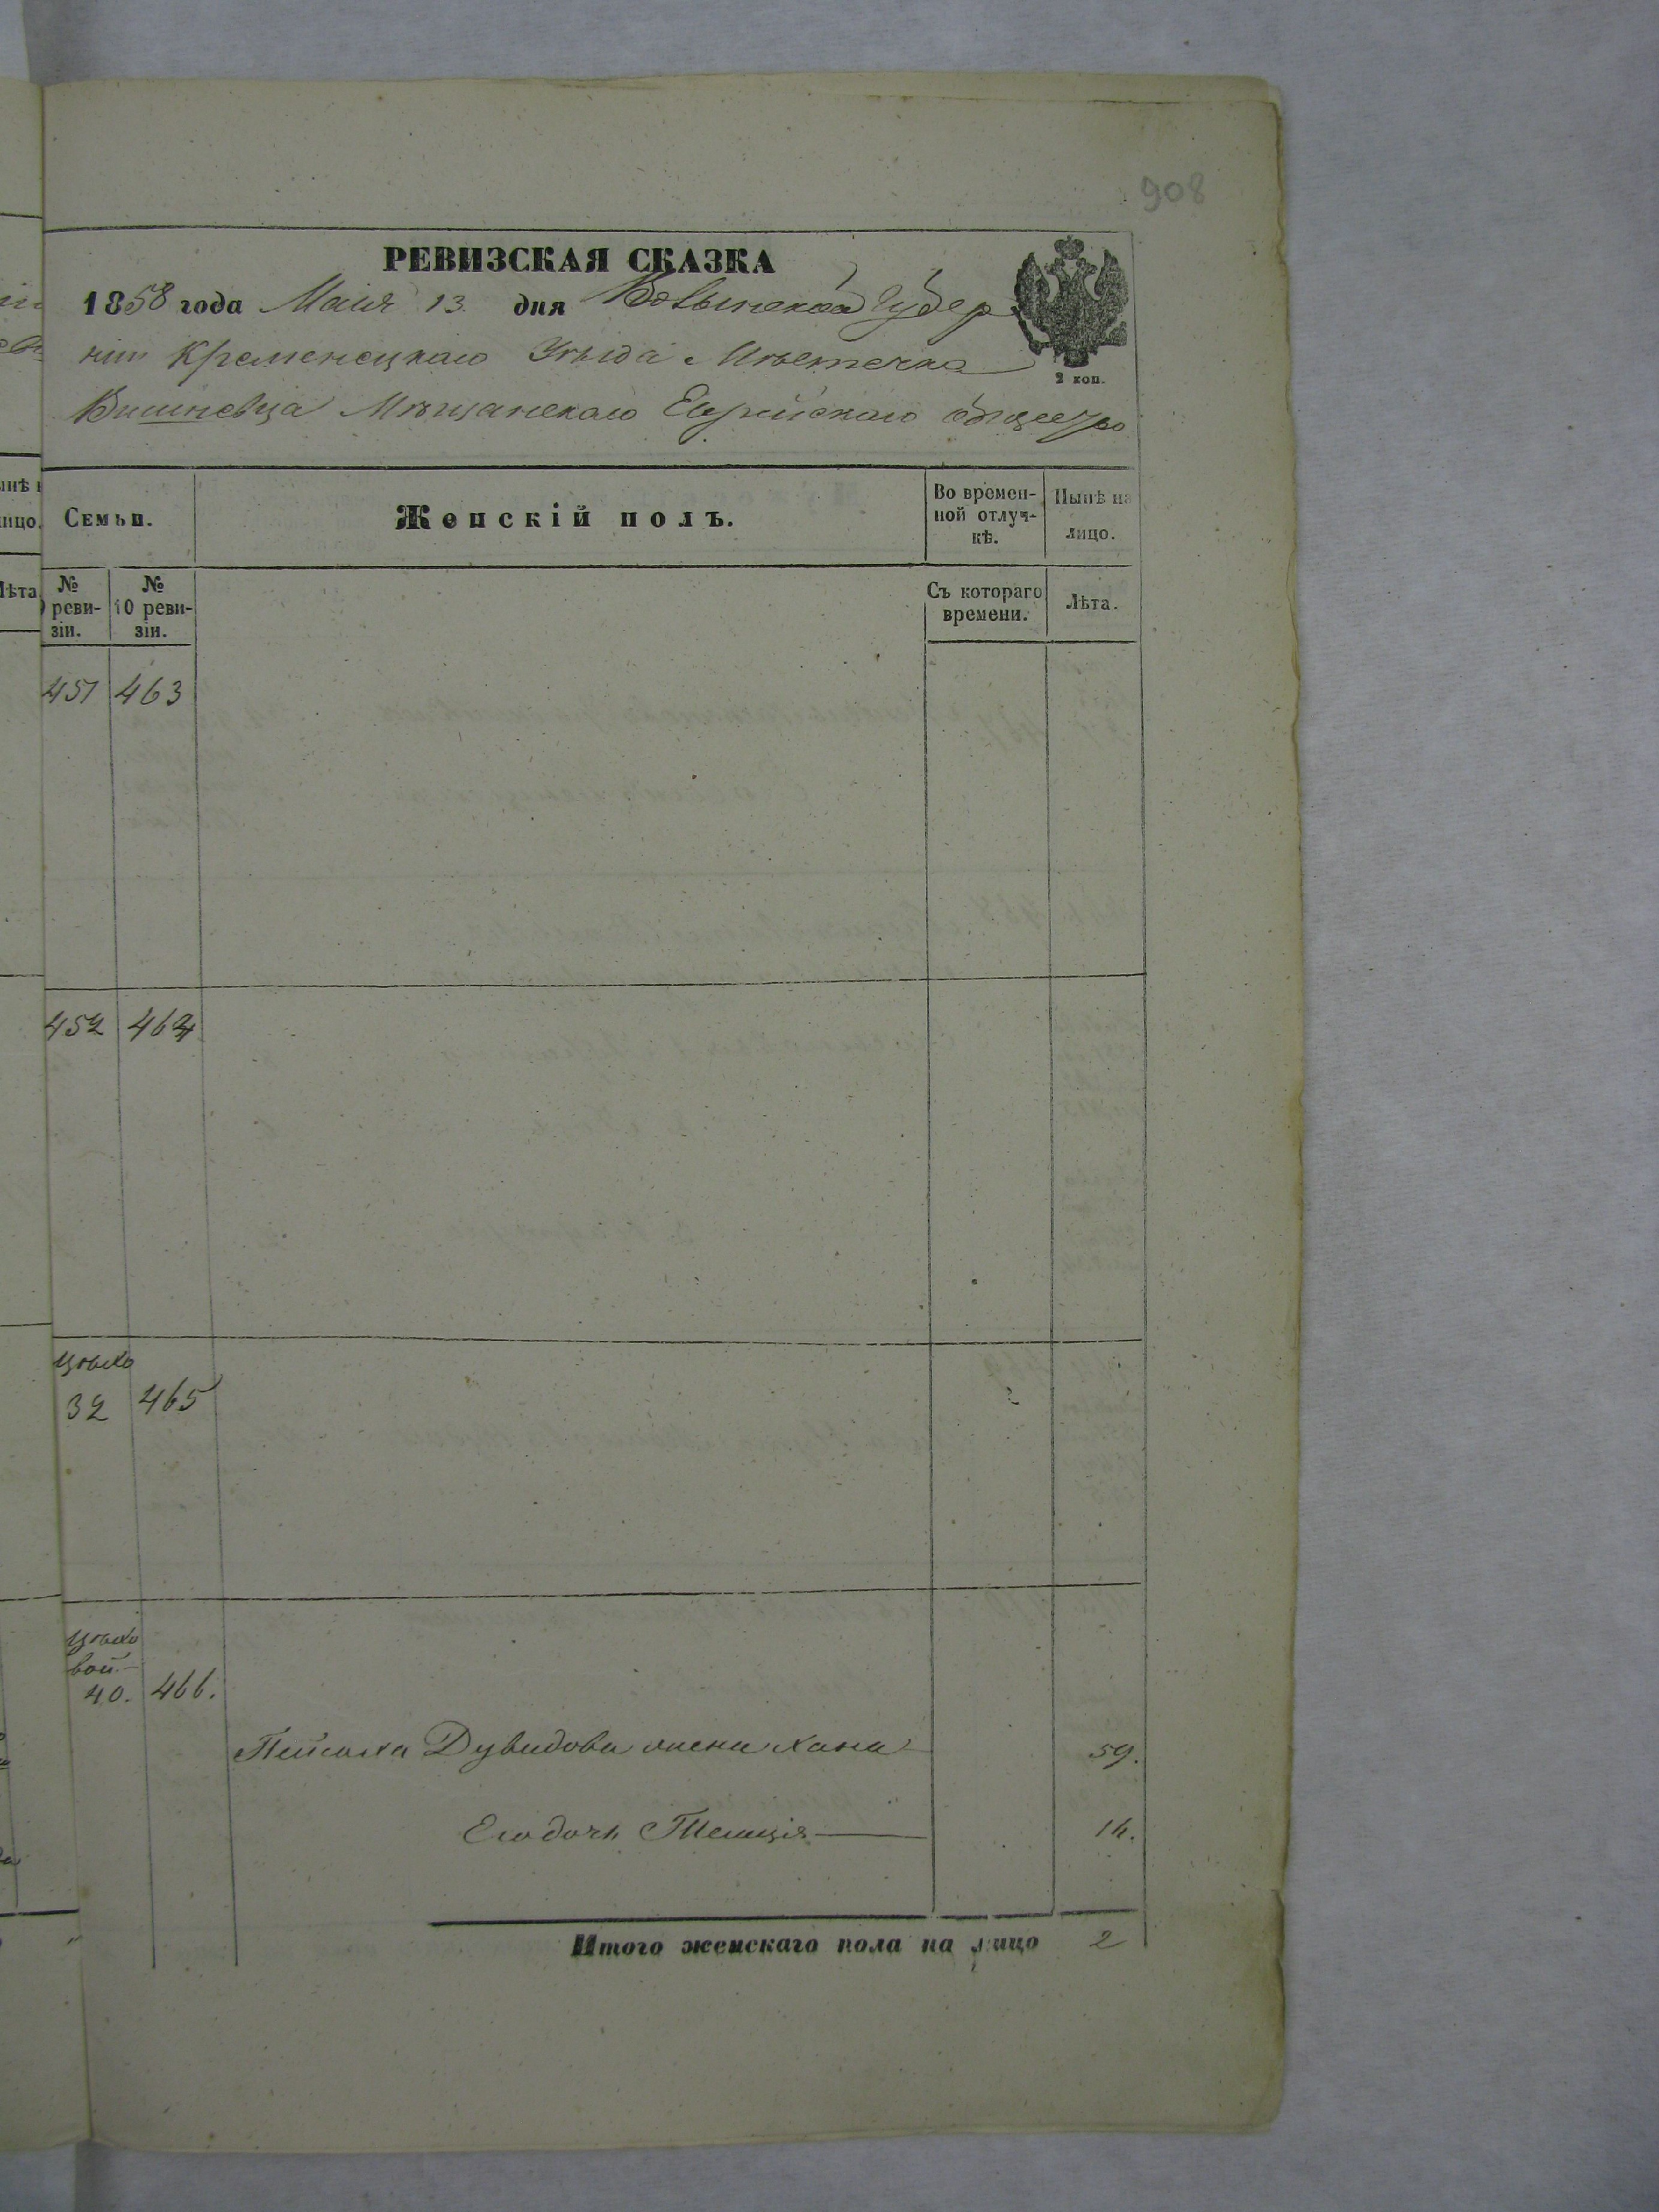 908
РЕВИЗСКАЯ СКАЗКА
1858 года Маія 13. дня Волынской Губер
ніи Кременецкаго Уѣзда Мѣстечка
2 коп.
Вишневца Мѣщанскаго Еврейскаго общества
Семьи.
Женскій полъ.
Во времен-
ной отлуч-
кѣ.
Нынѣ на
лицо.
№
9 реви-
зіи.
№
10 реви-
зіи.
Съ котораго
времени.
Лѣта.
451 463
452 464
цѣхо
32 465
цѣхо
вой.
40. 466.
Дувидова жена Хана 59.
Его дочь 14.
Итого женскаго пола на лицо 2